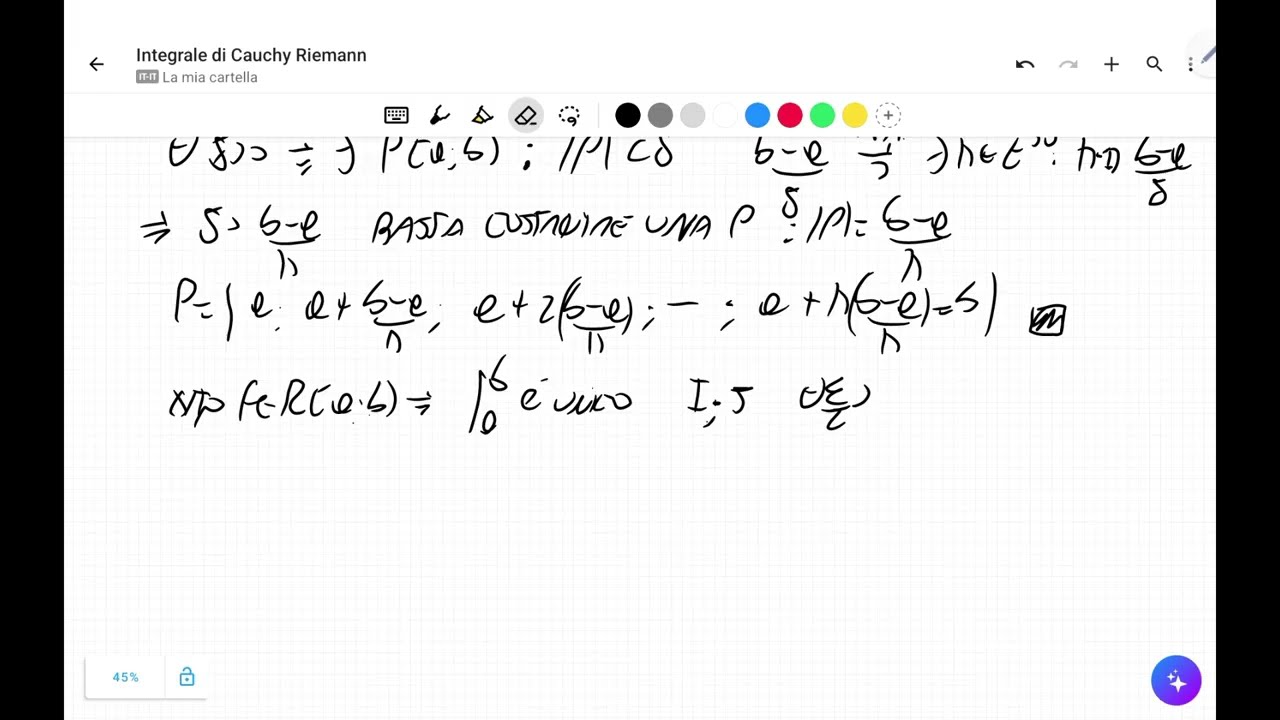 Integrale di Cauchy Riemann
IT-IT La mia cartella
∀ δ>0 ⇒ ∃ P(a,b) : |P|<δ (b-a)/δ ∃ n∈ : n> (b-a)/δ
⇒ δ> (b-a)/n BASTA COSTRUIRE UNA P : |P|= (b-a)/n
P={a; a+(b-a)/n; a+2((b-a)/n); — ; a+n((b-a)/n)=b}
f∈R(a;b) ⇒ ∫ₐᵇ è unico I; J ∀ ε/2 >
45%